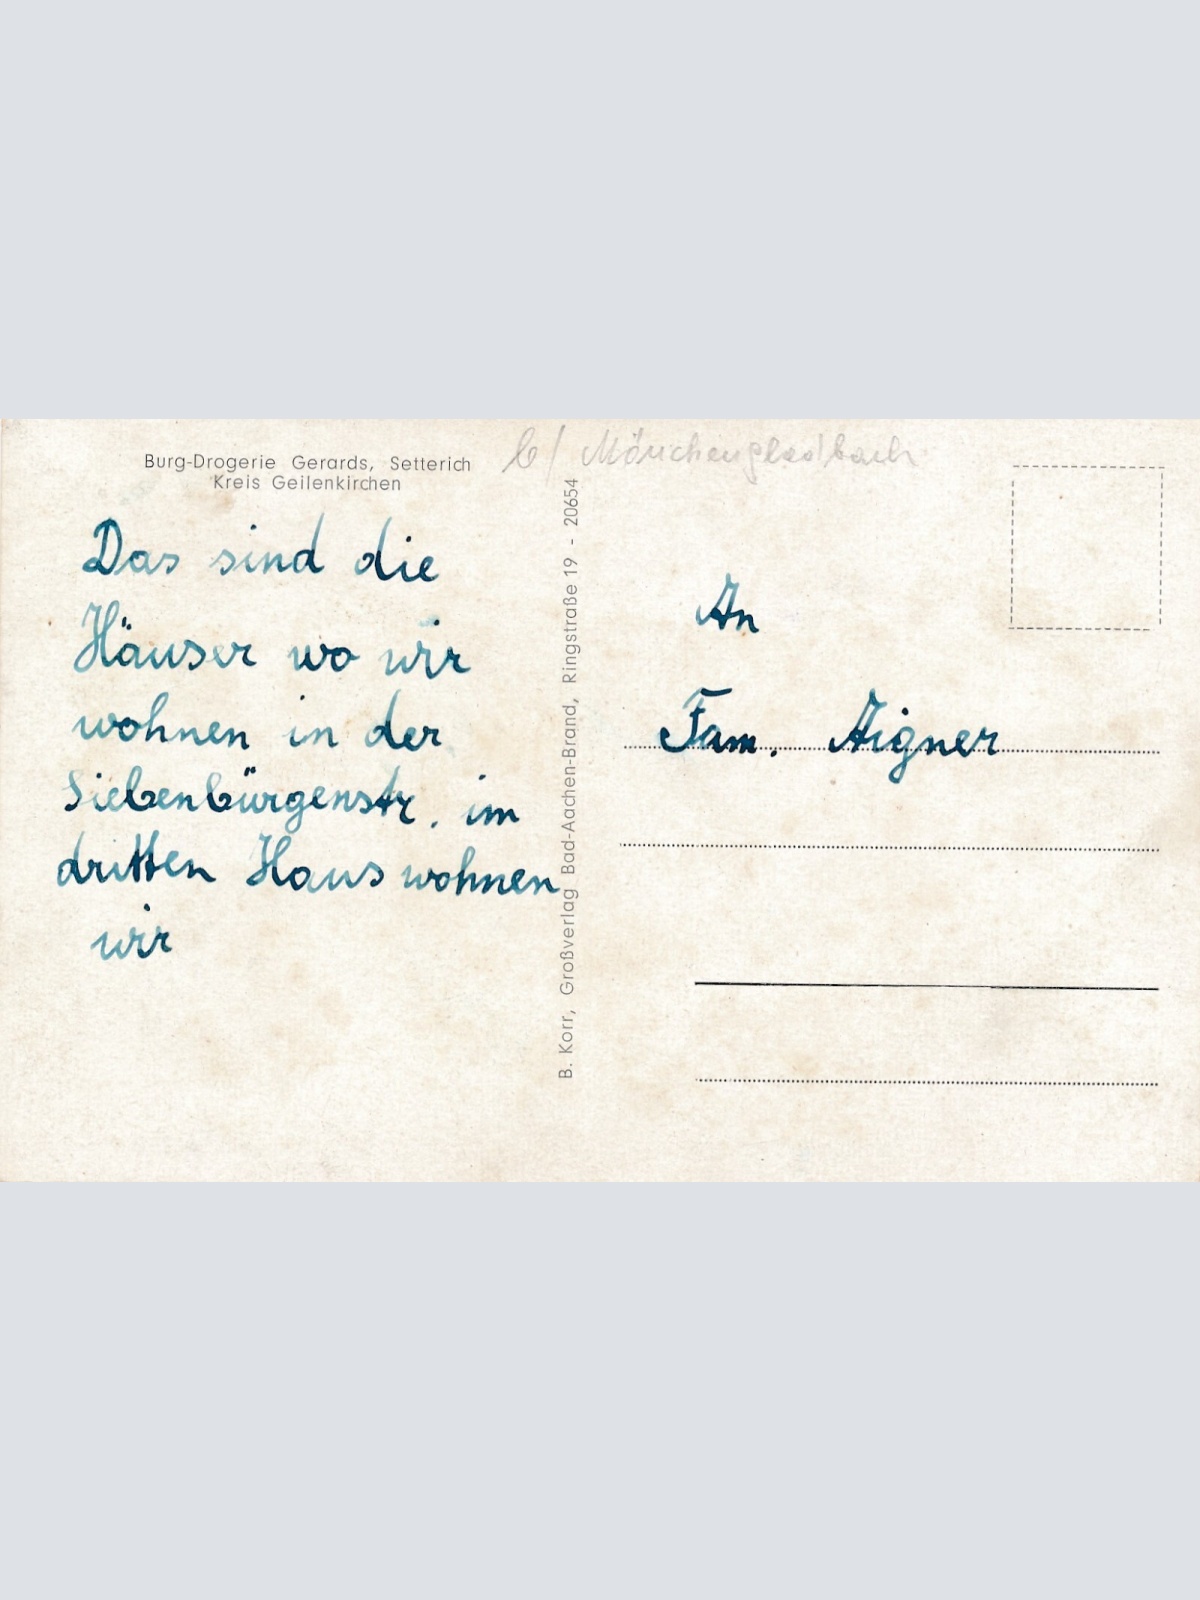 Burg-Drogerie Gerards, Setterich
Kreis Geilenkirchen
b/ Mönchengladbach
Das sind die
Häuser wo wir
wohnen in der
Siebenbürgenstr. im
dritten Haus wohnen
wir
B. Korr, Großverlag Bad-Aachen-Brand, Ringstraße 19 - 20654
An
Fam. Aigner